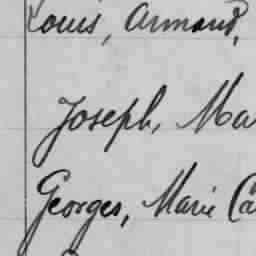 Louis, Armand,
Joseph, Ma
Georges, Marie Ca